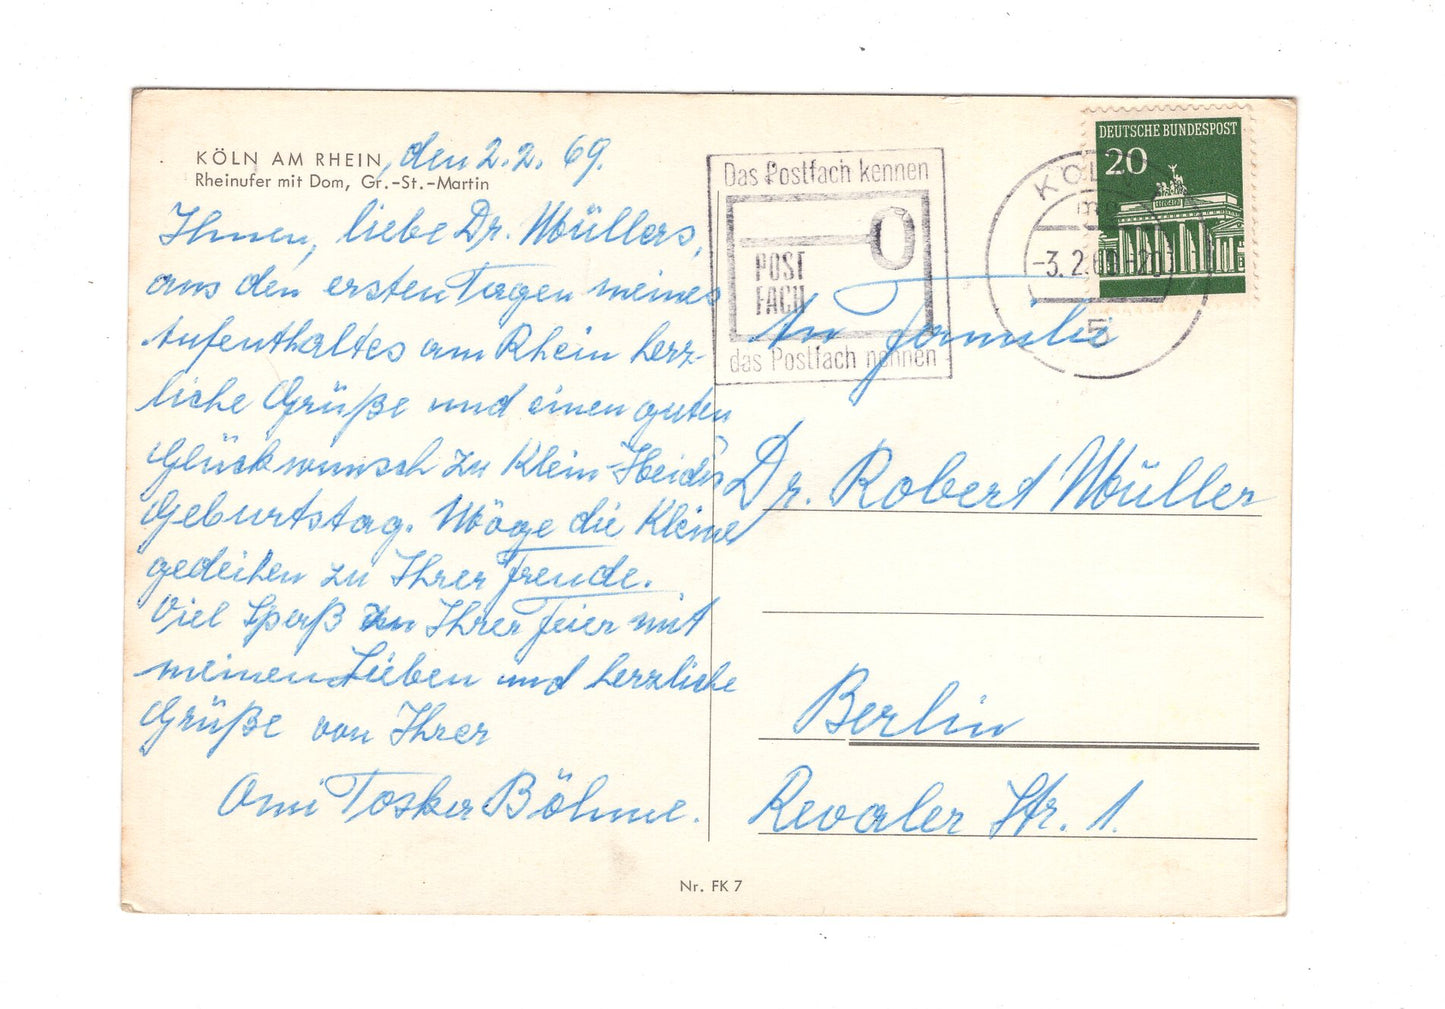 KÖLN AM RHEIN, den 2.2.69.
Rheinufer mit Dom, Gr.-St.-Martin
Ihnen, liebe Dr. Müllers,
aus den ersten Tagen meines
Aufenthaltes am Rhein herz-
liche Grüße und einen guten
Glückwunsch zu Klein-Heidis
Geburtstag. Möge die Kleine
gedeihen zu Ihrer Freude.
Viel Spaß zu Ihrer Feier mit
meinen Lieben und herzliche
Grüße von Ihrer
Omi Böhme.
Das Postfach kennen
POST
FACH
das Postfach nennen
DEUTSCHE BUNDESPOST
20
KÖLN
-3.2.69-20
5
An Familie
Dr. Robert Müller
Berlin
Revaler Str. 1.
Nr. FK 7